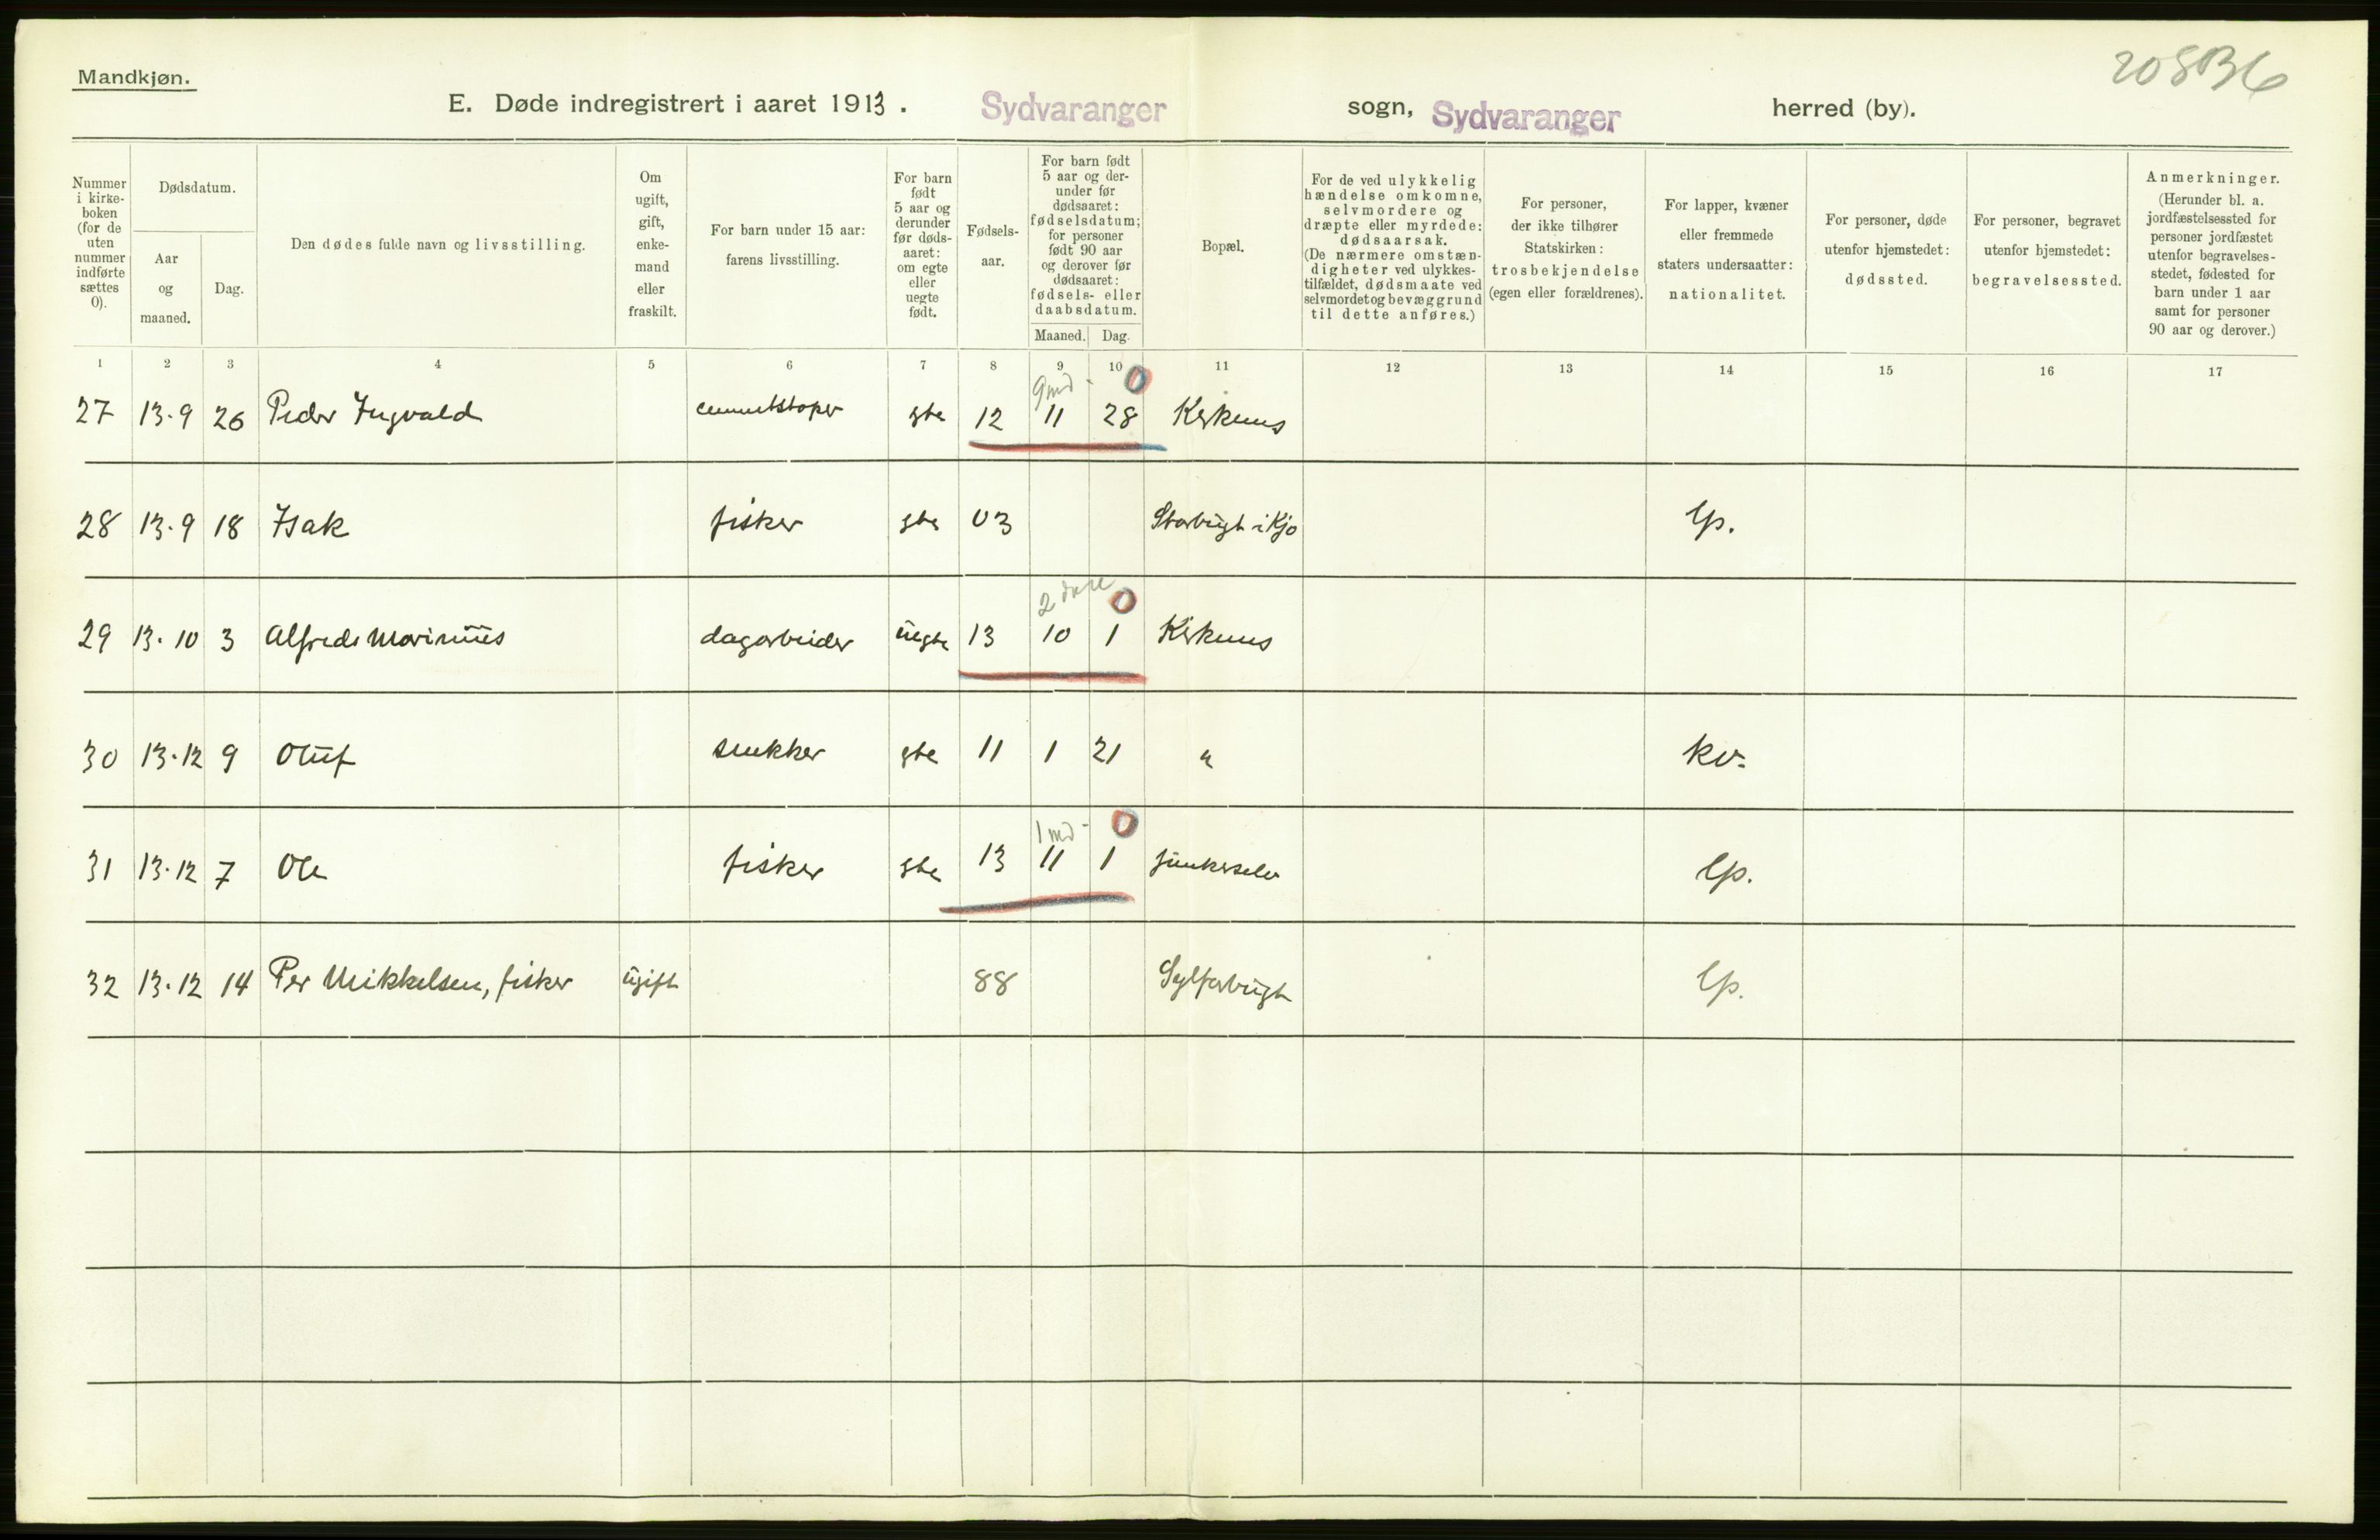 Mandkjøn.
20 5B6
E. Døde indregistrert i aaret 1913. Sydvaranger sogn, Sydvaranger herred (by).
Nummer i kirke-boken (for de uten nummer indførte sættes 0).
Dødsdatum.
Aar og maaned.
Dag.
Den dødes fulde navn og livsstilling.
Om ugift, gift, enke-mand eller fraskilt.
For barn under 15 aar: farens livsstilling.
For barn født 5 aar og derunder før døds-aaret: om egte eller uegte født.
Fødsels-aar.
For barn født 5 aar og der-under før dødsaaret: fødselsdatum; for personer født 90 aar og derover før dødsaaret: fødsels- eller daabsdatum.
Maaned. Dag.
Bopæl.
For de ved ulykkelig hændelse omkomne, selvmordere og dræpte eller myrdede: dødsaarsak. (De nærmere omstæn-digheter ved ulykkes-tilfældet, dødsmaate ved selvmordet og bevæggrund til dette anføres.)
For personer, der ikke tilhører Statskirken: trosbekjendelse (egen eller forældrenes).
For lapper, kvæner eller fremmede staters undersaatter: nationalitet.
For personer, døde utenfor hjemstedet: dødssted.
For personer, begravet utenfor hjemstedet: begravelsessted.
Anmerkninger. (Herunder bl. a. jordfæstelsessted for personer jordfæstet utenfor begravelses-stedet, fødested for barn under 1 aar samt for personer 90 aar og derover.)
1 2 3 4 5 6 7 8 9 10 11 12 13 14 15 16 17
9 md 0
27 13.9 26 Peder Ingvald cementstøper gte 12 11 28 Kirkenes
28 13.9 18 Isak fisker gte 03 Storbugt i Kjø lp.
2 0
29 13.10 3 Alfred Marinius dagarbeider uegte 13 10 1 Kirkenes
30 13.12 9 Oluf snekker gte 11 1 21 " kv.
1 md 0
31 13.12 7 Ole fisker gte 13 11 1 Junkerselv lp.
32 13.12 14 Per Mikkelsen, fisker ugift 88 Sylferbugt lp.